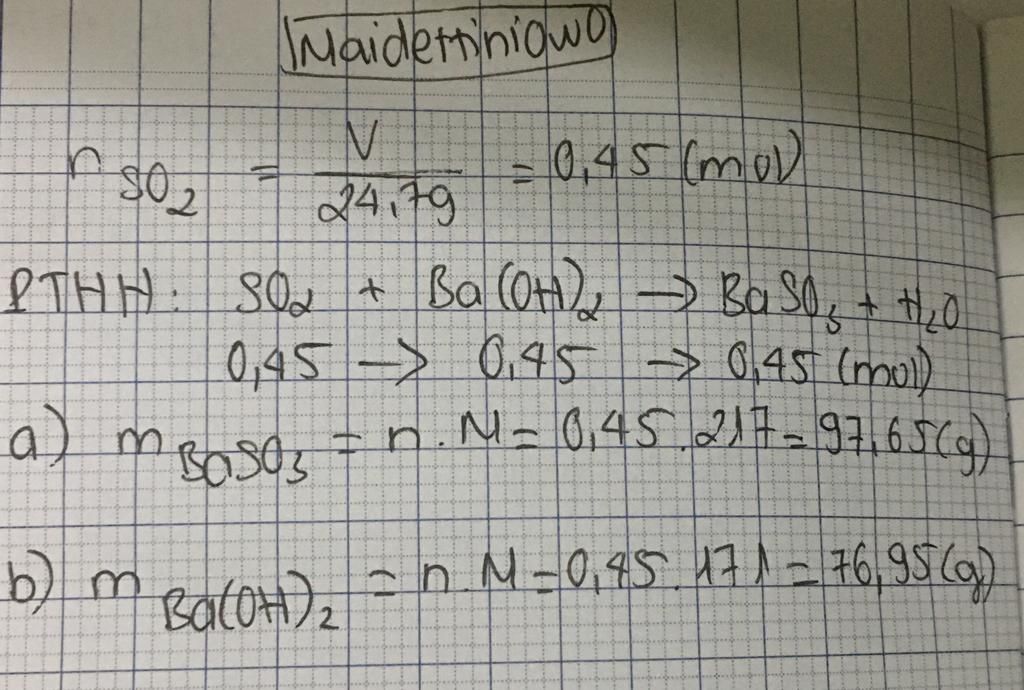 Maidettiniowo
n SO₂ = V / 24,79 = 0,45 (mol)
PTHH: SO₂ + Ba(OH)₂ → BaSO₃ + H₂O
0,45 → 0,45 → 0,45 (mol)
a) m BaSO₃ = n.M = 0,45.217 = 97,65(g)
b) m Ba(OH)₂ = n.M = 0,45.171 = 76,95(g)